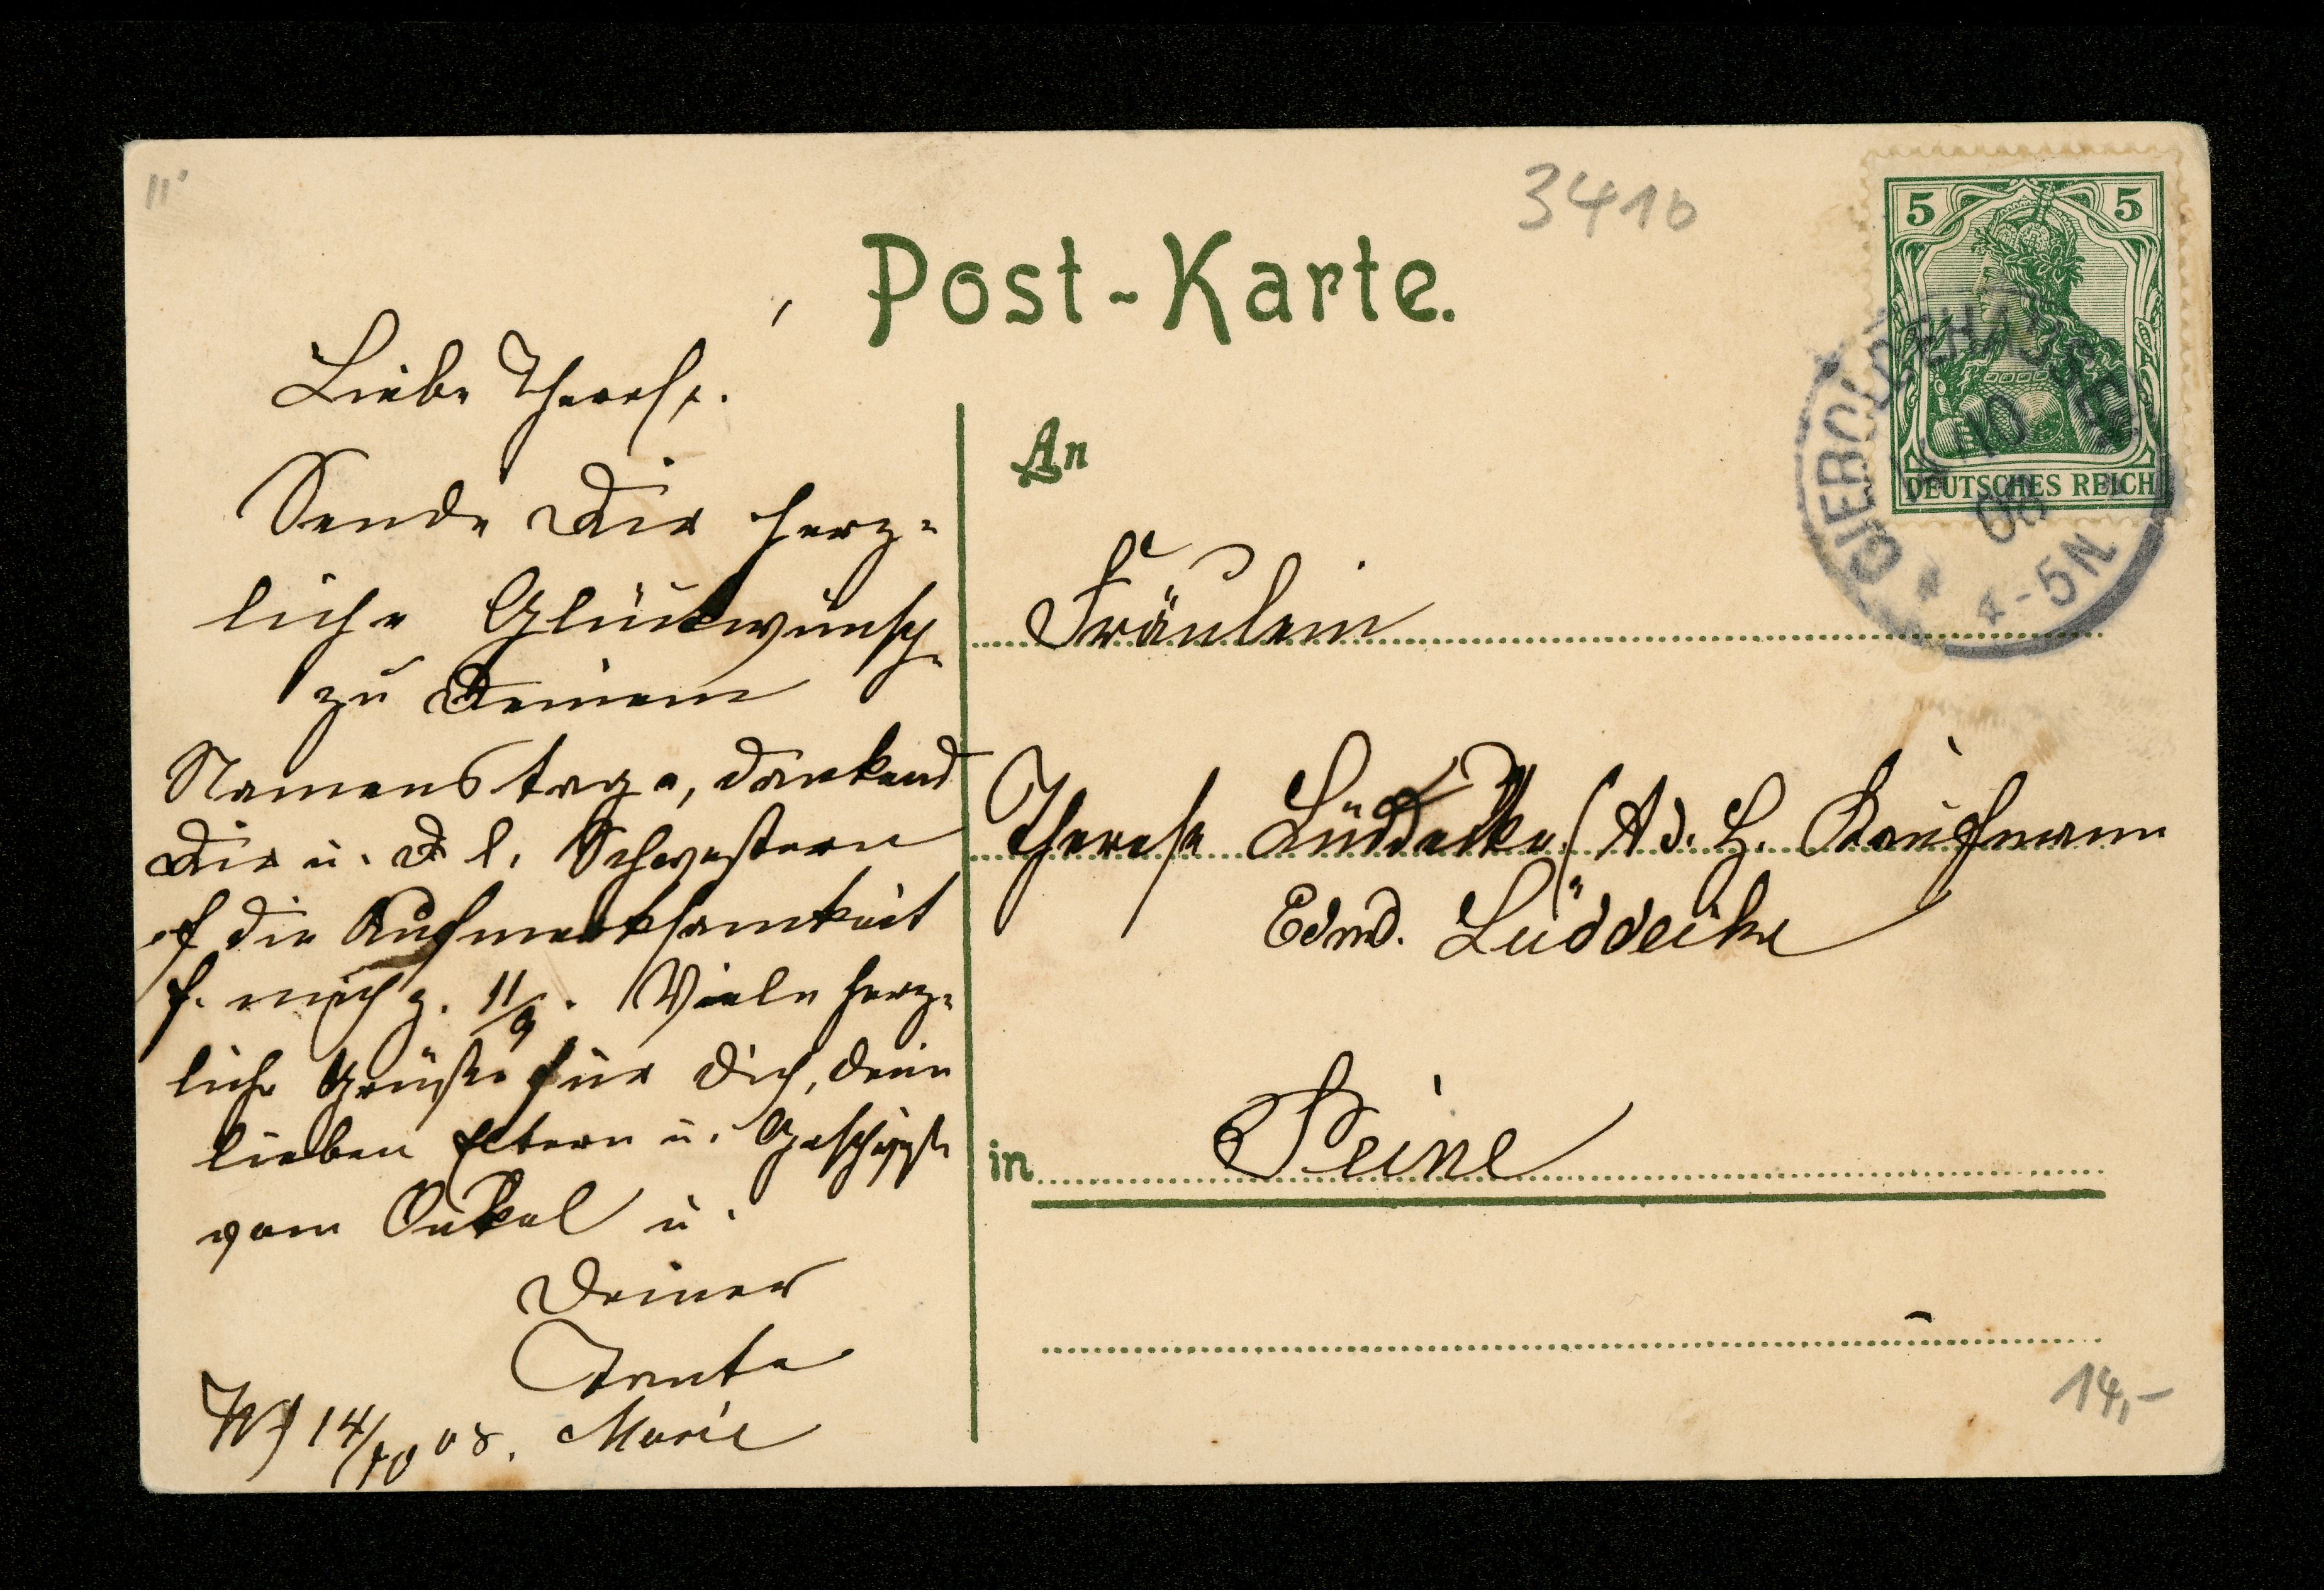 11'
3410
Post-Karte.
5 5
DEUTSCHES REICH
10
08
4-5N
Liebe Therese.
Sende Dir herz-
liche Glückwünsche
zu Deinem
Namenstage, dankend
Dir u. D l. Schwestern
f die Aufmerksamkeit
f. mich z. 11/9. Viele herz-
liche Grüße für Dich, Deine
lieben Eltern u. Geschwister
vom Onkel u.
Deiner
Tante
Marie
14/10 08.
An
Fräulein
Therese Lüddecke (Ad. H. Kaufmann
Edmd. Lüddecke
in Peine
14,-